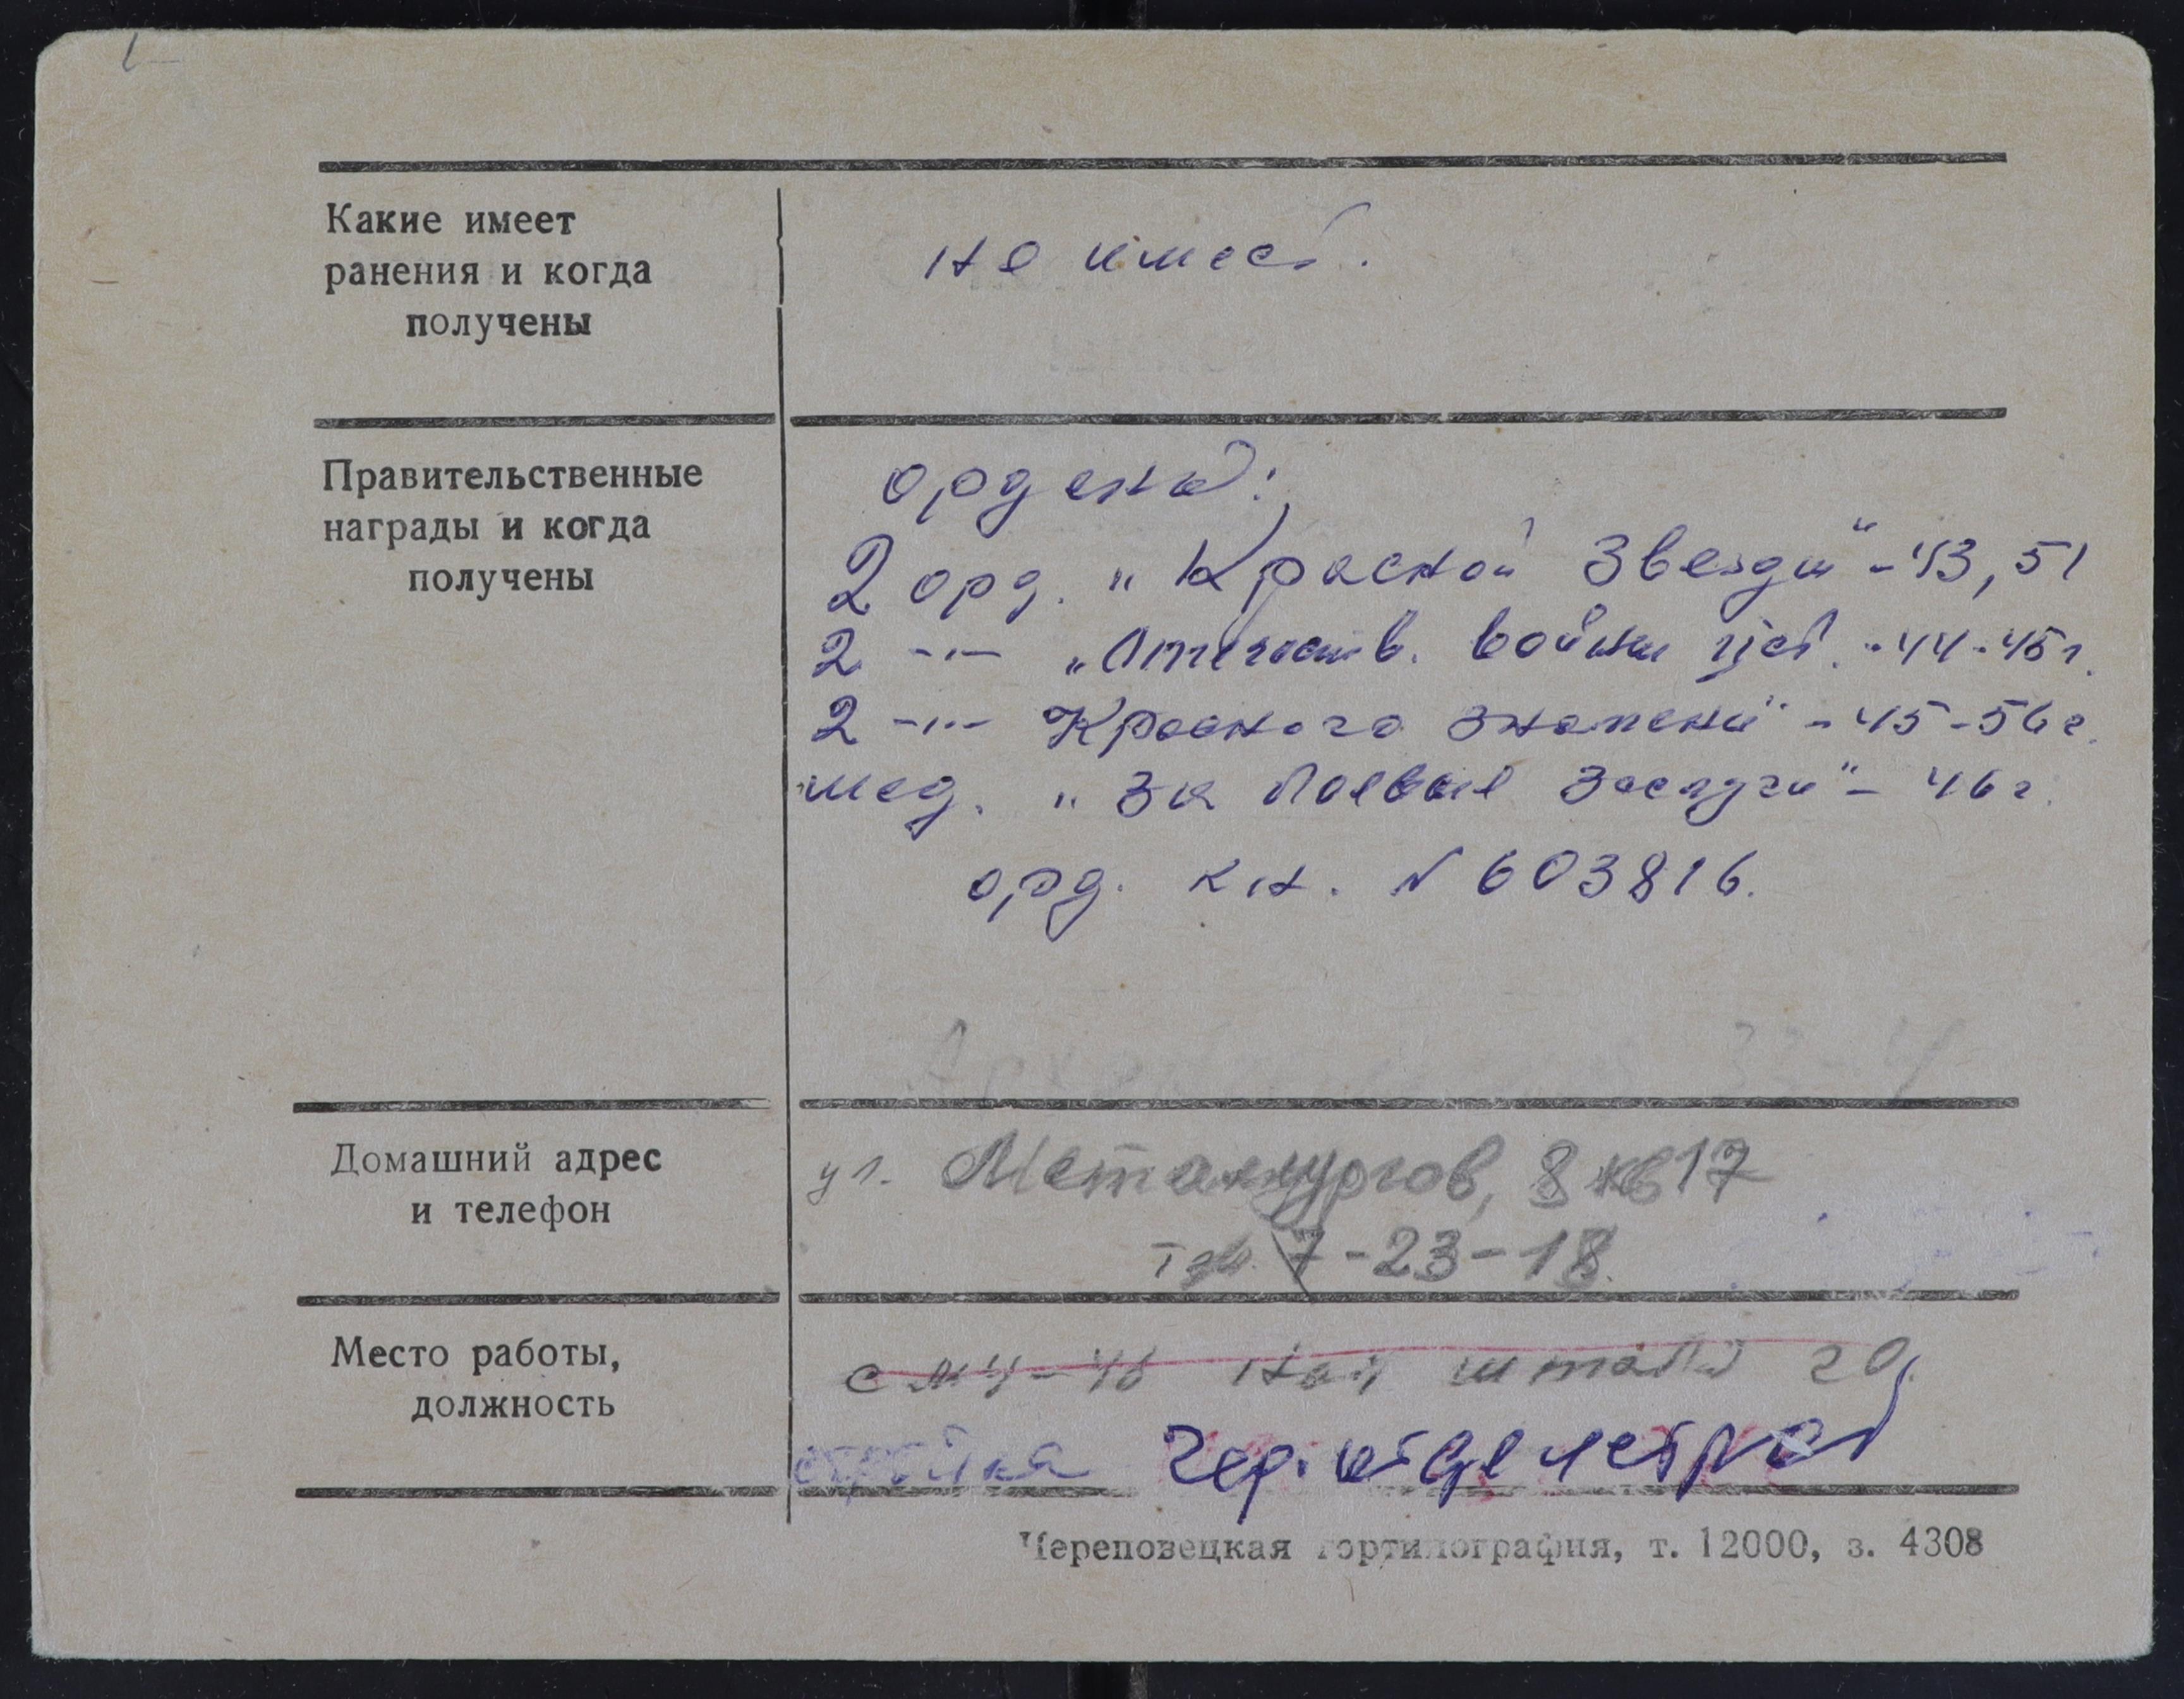 Какие имеет
ранения и когда
получены
не имеет.
Правительственные
награды и когда
получены
ордена:
2 орд. „Красной Звезды" - 43, 51
2 -"- „Отечеств. войны II ст. - 44-45 г.
2 -"- Красного Знамени" - 45-56 г.
мед. „За боевые заслуги" - 46 г.
орд. кн. № 603816.
Домашний адрес
и телефон
ул. Металлургов, 8 кв 17
тел. 7-23-18.
Место работы,
должность
СМУ-46 нач штаба ГО.
стройка Чер.
Череповецкая гортипография, т. 12000, з. 4308